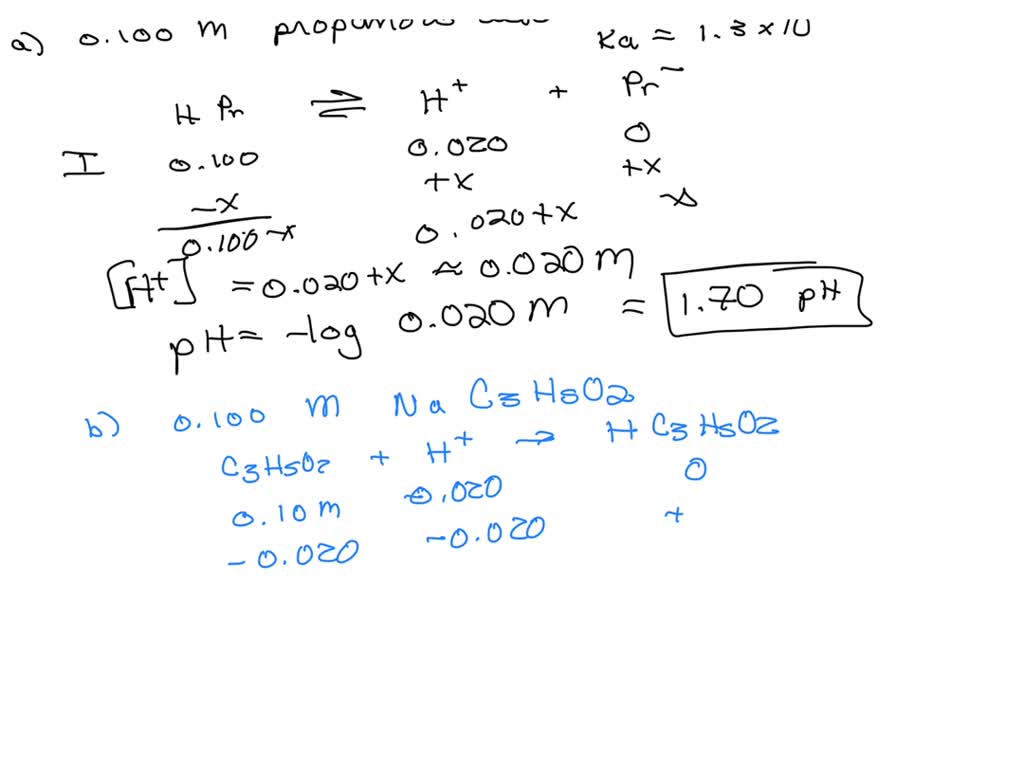 a) 0.100 M
Ka = 1.3 × 10
H Pr ⇌ H+ + Pr−
I 0.100 0.020 0
−x +x +x
0.100 −x 0.020+x
[H+] = 0.020+x ≈ 0.020 M
pH = −log 0.020 M = 1.70 pH
b) 0.100 M Na C3H5O2
C3H5O2 + H+ → H C3H5O2
0.10 M 0.020 0
−0.020 −0.020 +